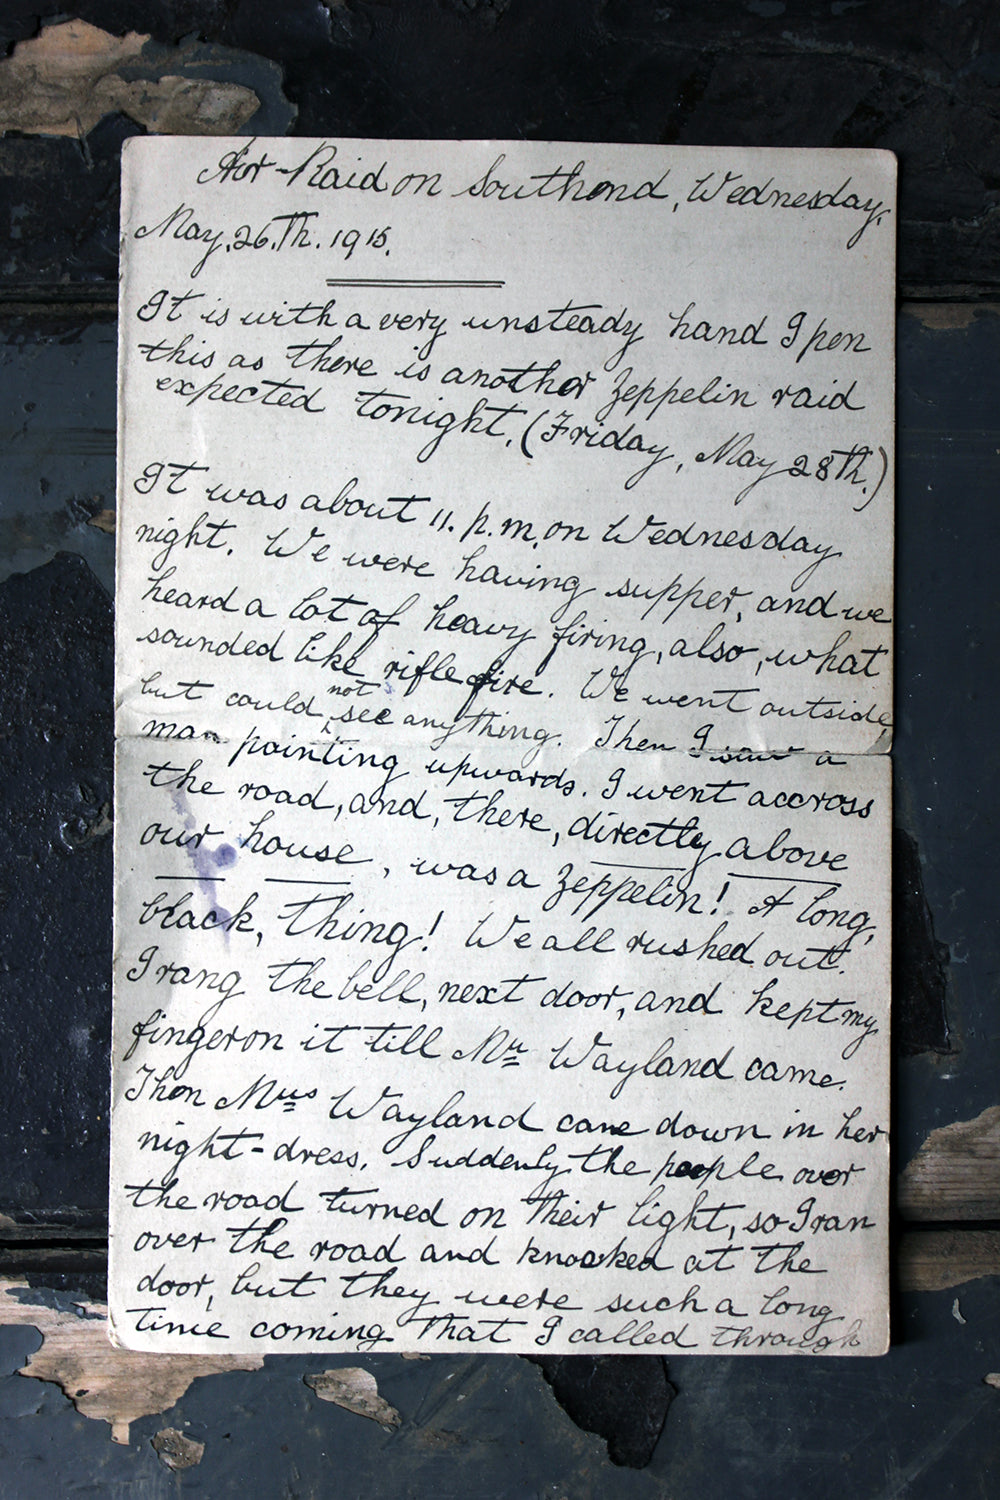 Air-Raid on Southend, Wednesday,
May. 26.Th. 1915.
It is with a very unsteady hand I pen
this as there is another Zeppelin raid
expected tonight. (Friday, May 28Th.)
It was about 11. p.m. on Wednesday
night. We were having supper, and we
heard a lot of heavy firing, also, what
sounded like rifle fire. We went outside,
but could not see anything. Then I saw a
man pointing upwards. I went accross
the road, and, there, directly above
our house, was a Zeppelin! A long,
black, thing! We all rushed out.
I rang the bell, next door, and kept my
finger on it till Mr Wayland came.
Then Mrs Wayland came down in her
night-dress. Suddenly the people over
the road turned on their light, so I ran
over the road and knocked at the
door, but they were such a long
time coming that I called through